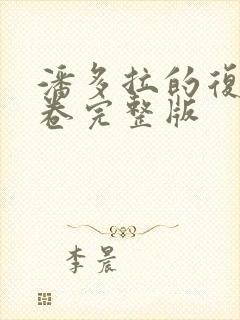 潘多拉的復
卷完整版
李晨